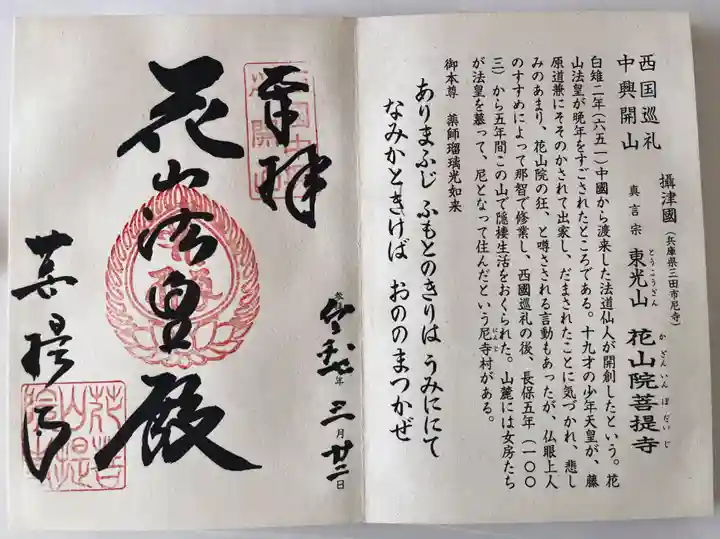 西国巡礼
中興開山
攝津國（兵庫県三田市尼寺）
真言宗 東光山 花山院菩提寺
とうこうざん かざんいんぼだいじ
白雉二年（六五一）中國から渡来した法道仙人が開創したという。花
山法皇が晩年をすごされたところである。十九才の少年天皇が、藤
原道兼にそそのかされて出家し、だまされたことに気づかれ、悲し
みのあまり、花山院の狂、と噂さされる言動もあったが、仏眼上人
のすすめによって那智で修業し、西國巡礼の後、長保五年（一〇〇
三）から五年間この山で隠棲生活をおくられた。山麓には女房たち
が法皇を慕って、尼となって住んだという尼寺村がある。
にんじ
御本尊 薬師瑠璃光如来
ありまふじ ふもとのきりは うみににて
なみかときけば おののまつかぜ
奉拝
令和 年 三月廿二日
花山法皇殿
菩提寺